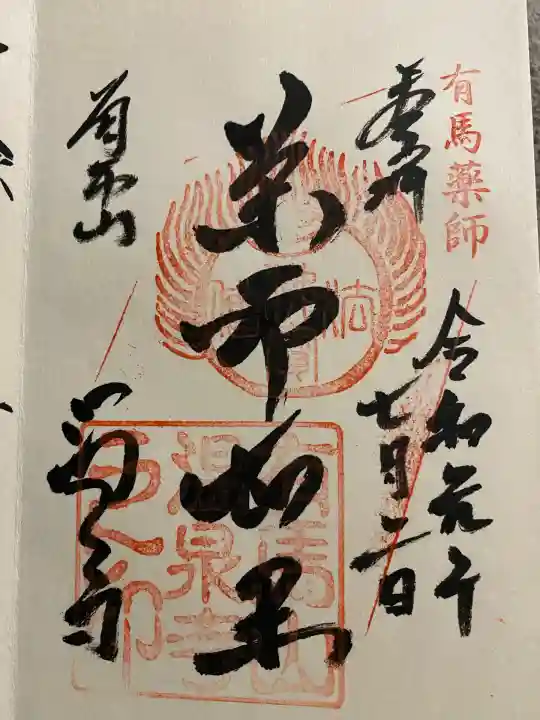 有馬薬師
奉拝
令和元年
七月二日
薬師如来
有馬山
温泉寺
法
有馬山
温泉寺
之印